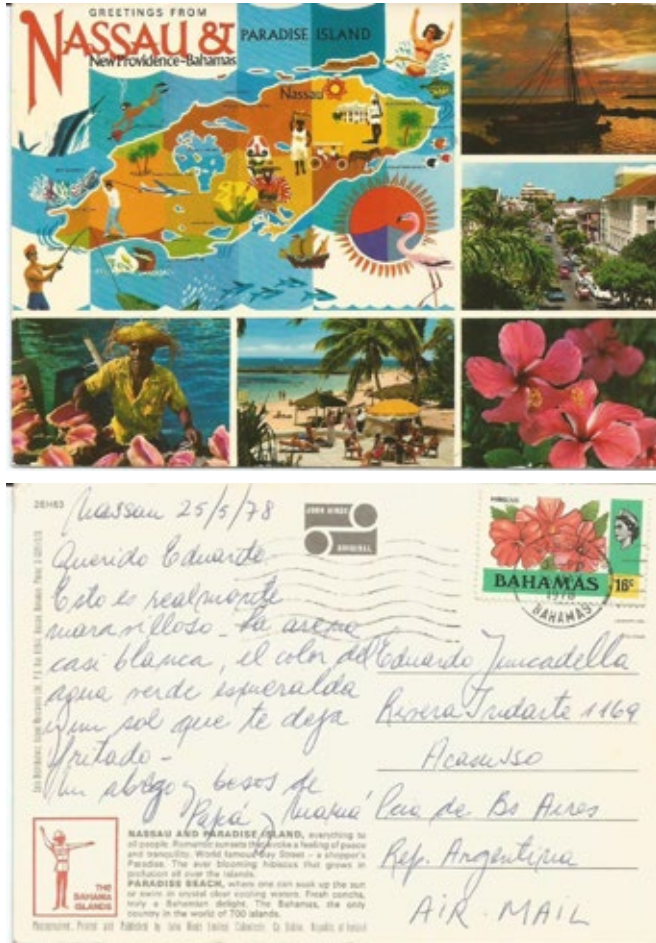 GREETINGS FROM
NASSAU & PARADISE ISLAND
New Providence-Bahamas
Nassau
28H63
Nassau 25/5/78
JOHN HINDE
ORIGINAL
HIBISCUS
BAHAMAS 16c
1978
BAHAMAS
Querido Eduardo
Esto es realmente
maravilloso - La arena
casi blanca, el color del
agua verde esmeralda
y un sol que te deja
fritado -
Un abrazo y besos de
Papá y Mamá
Eduardo Juncadella
Rivera Indarte 1169
Acassuso
Pcia de Bs Aires
Rep. Argentina
AIR-MAIL
THE
BAHAMA
ISLANDS
NASSAU AND PARADISE ISLAND, everything to
all people. Romantic sunsets that evoke a feeling of peace
and tranquility. World famous Bay Street - a shopper's
Paradise. The ever blooming hibiscus that grows in
profusion all over the islands.
PARADISE BEACH, where one can soak up the sun
or swim in crystal clear cooling waters. Fresh conchs,
truly a Bahamian delight. The Bahamas, the only
country in the world of 700 islands.
Photographed, Printed and Published by John Hinde Limited Cabinteely, Co. Dublin, Republic of Ireland